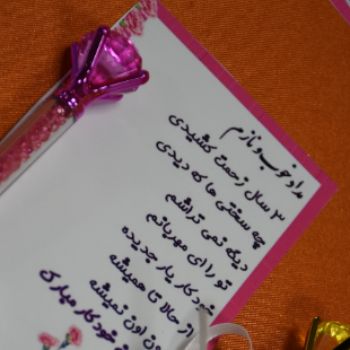 مداد خوب و نازم
۳ سال زحمت کشیدی
چه سختی ها که دیدی
دیگه نمی تراشم
تو رو ای مهربانم
خودکار یار جدیده
از حالا تا همیشه
اون نمیشه
خودکار مبارک